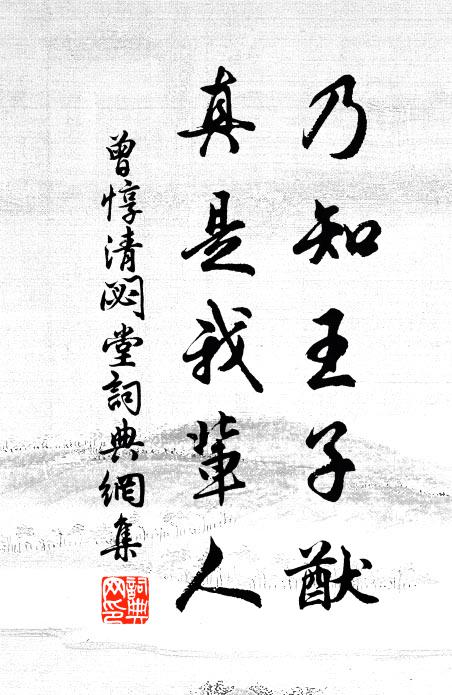 乃知王子猷
真是我輩人
曾惇清閟堂詞典網集
詞典网印